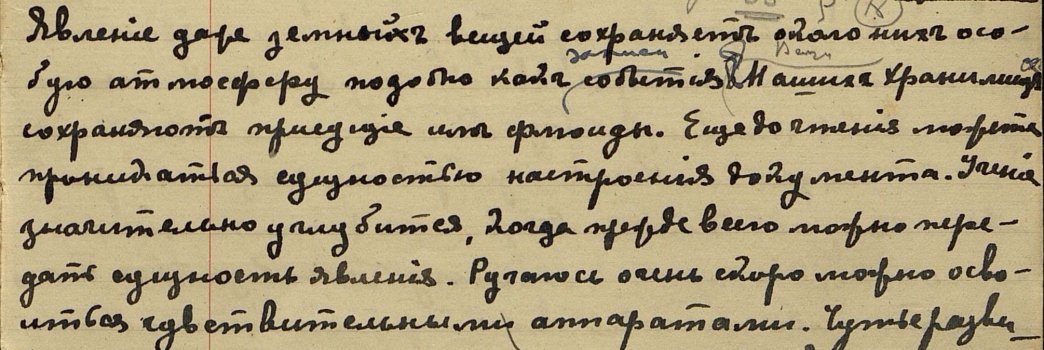 Явленіе даже земныхъ вещей сохраняетъ около нихъ осо-
записи Вещи
бую атмосферу подобно какъ событія Нашихъ Хранилищъ
сохраняютъ присущіе имъ флюиды. Еще до чтенія можете
проникаться сущностью настроенія документа. Ученіе
значительно углубится, когда прежде всего можно пере-
дать сущность явленія. Ручаюсь очень скоро можно осво-
иться чувствительными аппаратами. Чутье разви